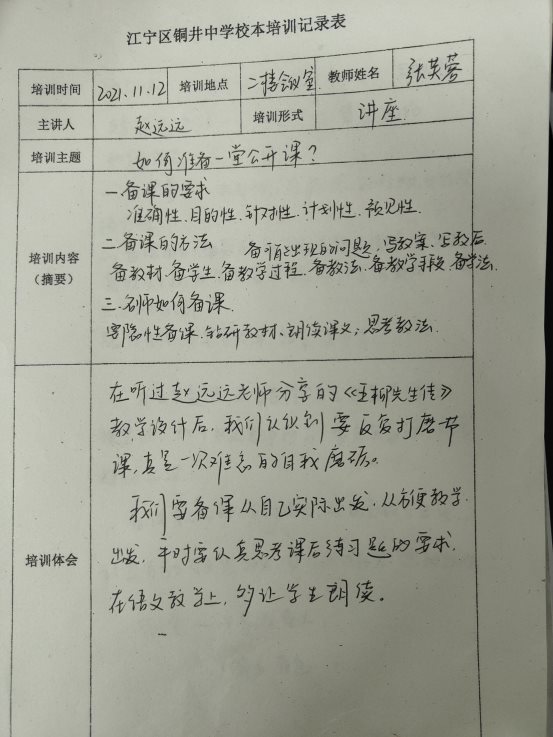 江宁区铜井中学校本培训记录表
培训时间 2021.11.12 培训地点 二楼会议室 教师姓名 张芙蓉
主讲人 赵远远 培训形式 讲座
培训主题 如何准备一堂公开课？
培训内容
（摘要）
一.备课的要求
准确性.目的性.针对性.计划性.预见性.
二.备课的方法 备可能出现的问题.写教案.写教后.
备教材.备学生.备教学过程.备教法.备教学手段.备学法.
三.名师如何备课.
隐性备课.钻研教材.朗读课文;思考教法.
培训体会
在听过赵远远老师分享的《五柳先生传》
教学设计后,我们认识到要反复打磨一节
课,真是一次难忘的自我磨砺。
我们要备课从自己实际出发.从方便教学
出发,平时要认真思考课后练习题的要求.
在语文教学上,多让学生朗读。